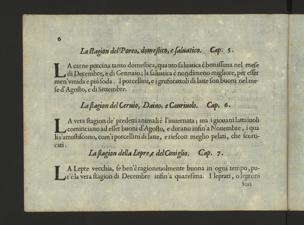 6
La stagion del Porco, domestico, e saluatico. Cap. 5.
LA carne porcina tanto domestica, quanto saluatica è bonissima nel mese
di Decembre, e di Gennaio; la saluatica è nondimeno migliore, per esser
men vmida e più soda. I porcellini, e i grufolatoli di latte son buoni nel me-
se d'Agosto, e di Settembre.
La stagion del Ceruio, Daino, e Cauriuolo. Cap. 6.
LA vera stagion de' predetti animali è l'inuernata; ma i giouani lattaiuoli
cominciano ad esser buoni d'Agosto, e durano infin'a Nouembre, i qua
li s'arrostiscono, com'i porcellini di latte, e riescon meglio pelati, che scorti-
cati.
La stagion della Lepre, e del Coniglio. Cap. 7.
LA Lepre vecchia, se ben'è ragioneuolmente buona in ogni tempo, pu-
r'è la vera stagion di Decembre infin'a quaresima. I leprati, o leprettini
son